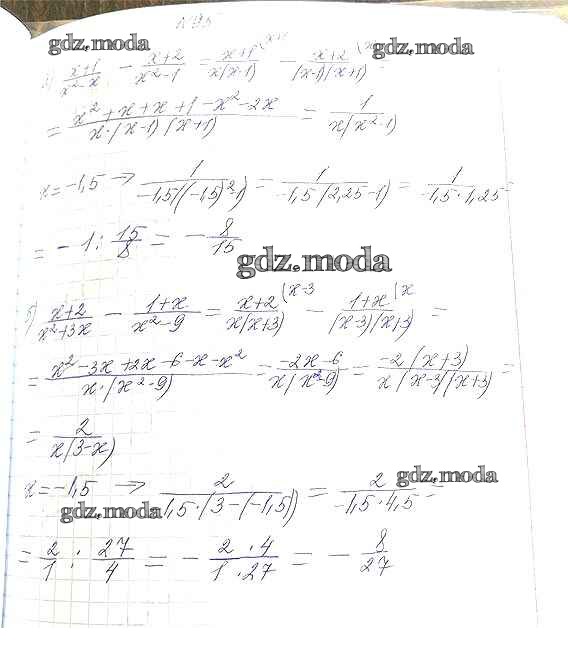 N 95
gdz.moda
gdz.moda
а) (x+1)/(x²-x) - (x+2)/(x²-1) = (x+1)/(x(x-1)) (x+1 - (x+2)/((x-1)(x+1)) (x =
= (x²+x+x+1-x²-2x)/(x·(x-1)(x+1)) = 1/(x(x²-1))
x = -1,5 → 1/(-1,5((-1,5)²-1)) = 1/(-1,5(2,25-1)) = 1/(-1,5·1,25) =
= -1 : 15/8 = -8/15
gdz.moda
б) (x+2)/(x²+3x) - (1+x)/(x²-9) = (x+2)/(x(x+3)) (x-3 - (1+x)/((x-3)(x+3)) (x =
= (x²-3x+2x-6-x-x²)/(x·(x²-9)) = (-2x-6)/(x(x²-9)) = (-2(x+3))/(x(x-3)(x+3)) =
= 2/(x(3-x))
gdz.moda
x = -1,5 → 2/(-1,5·(3-(-1,5)) = 2/(-1,5·4,5) =
gdz.moda
= 2/1 : 27/4 = - (2·4)/(1·27) = - 8/27